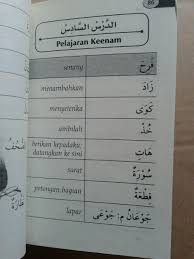 86
الدَّرْسُ السَّادِسُ
Pelajaran Keenam
senang فَرِحَ
menambahkan زَادَ
menyeterika كَوَى
ambilah خُذْ
berikan kepadaku, هَاتِ
datangkan ke sini
surat سُوْرَةٌ
potongan,bagian قِطْعَةٌ
lapar جَوْعَانُ م: جَوْعَى